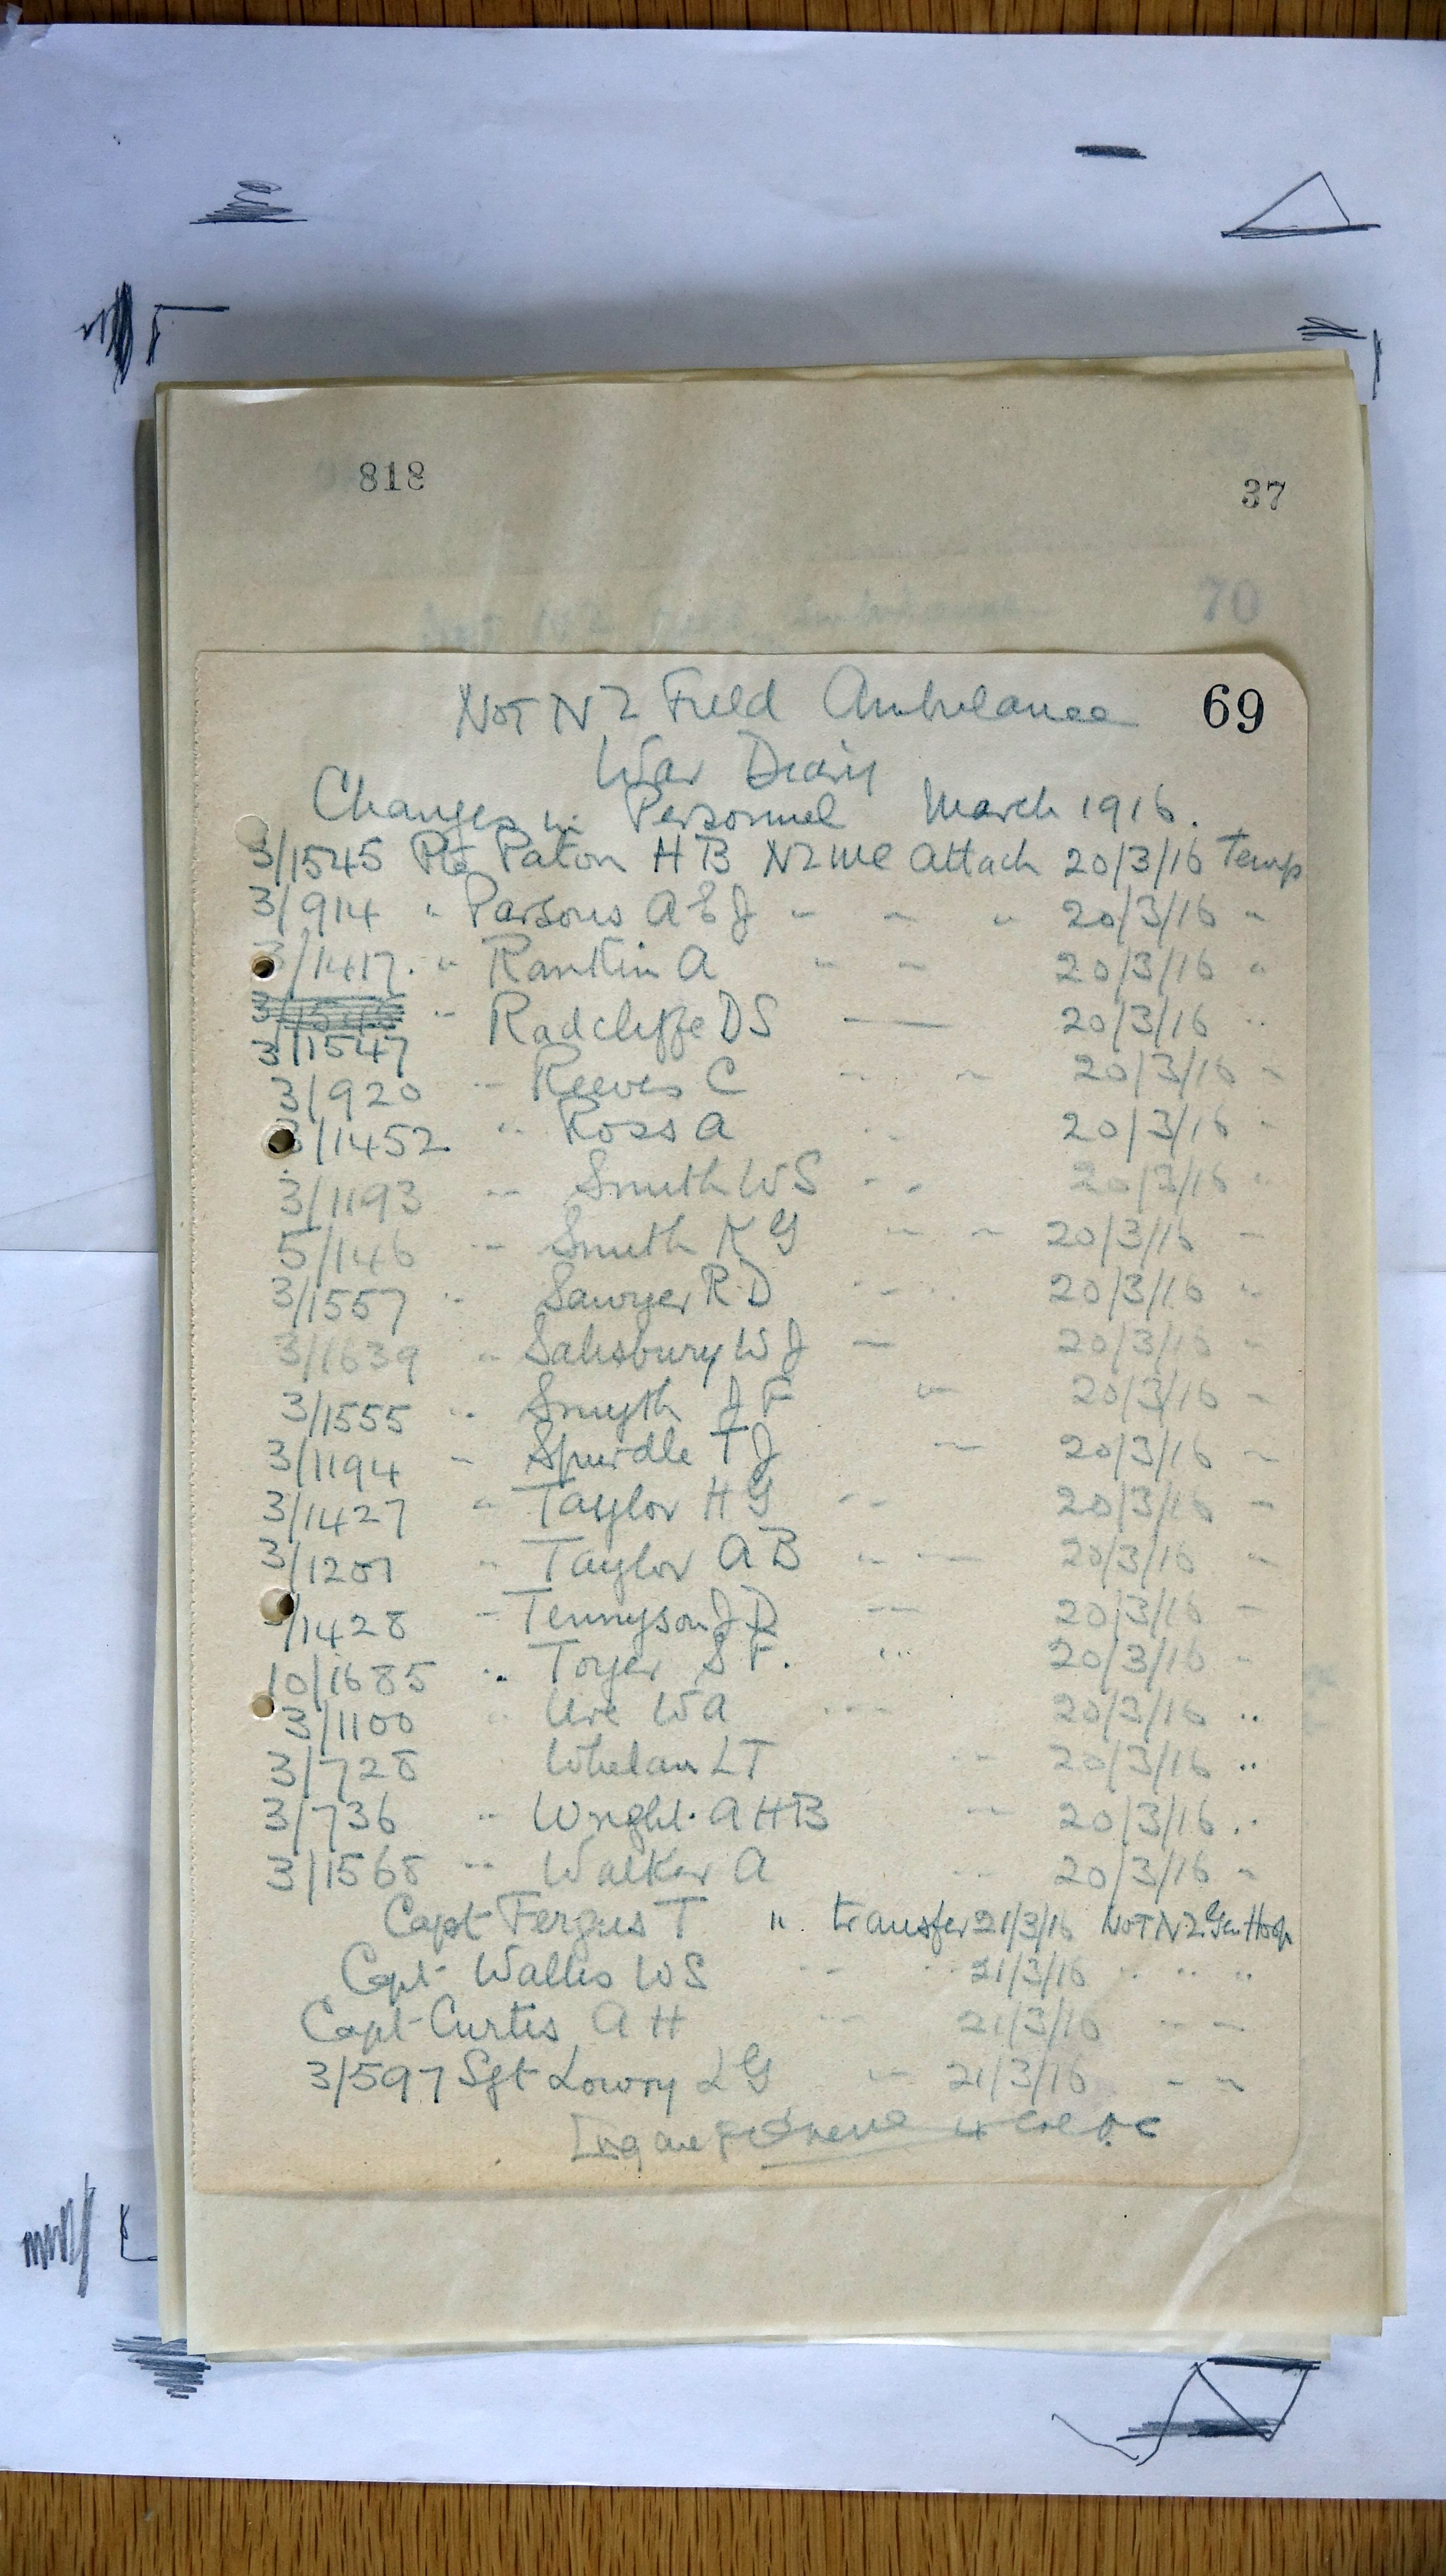 818 37
70
No1 NZ Field Ambulance 69
War Diary
Changes in Personnel March 1916.
3/1545 Pte Paton H B NZMC attach 20/3/16 Temp
3/914 " Parsons A E J " " " 20/3/16 "
3/1417. " Rankin A " " 20/3/16 "
" Radcliffe D S — 20/3/16 "
3/1547
3/920 " Reeves C " " 20/3/16 "
3/1452 " Ross A " 20/3/16 "
3/1193 " Smith W S " " 20/3/16 "
5/146 " Smith K G " " 20/3/16 "
3/1557 " Sawyer R D " " 20/3/16 "
3/1639 " Salisbury W J — 20/3/16 "
3/1555 " Smyth J F " 20/3/16 "
3/1194 " Spurdle T J " 20/3/16 "
3/1427 " Taylor H G " 20/3/16 "
3/1201 " Taylor A B " " 20/3/16 "
/1428 " Tennyson J D " 20/3/16 "
10/1685 " Toyer S F. " 20/3/16 "
3/1100 " Ure W A " 20/3/16 "
3/728 " Whelan L T " 20/3/16 "
3/736 " Wright A H B " 20/3/16 "
3/1568 " Walker A " 20/3/16 "
Capt Fergus T " transfer 21/3/16 No1 NZ Gen Hosp
Capt Wallis W S " " 21/3/16 " " "
Capt Curtis A H " 21/3/16 " "
3/597 Sgt Lowry L G " 21/3/16 " "